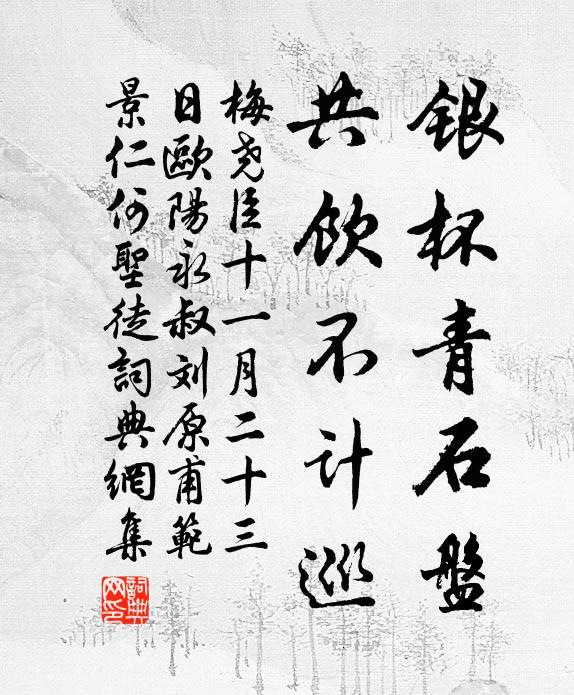 银杯青石盤
共飲不计巡
梅尧臣十一月二十三
日歐陽永叔刘原甫範
景仁何聖徒詞典網集
詞典网印